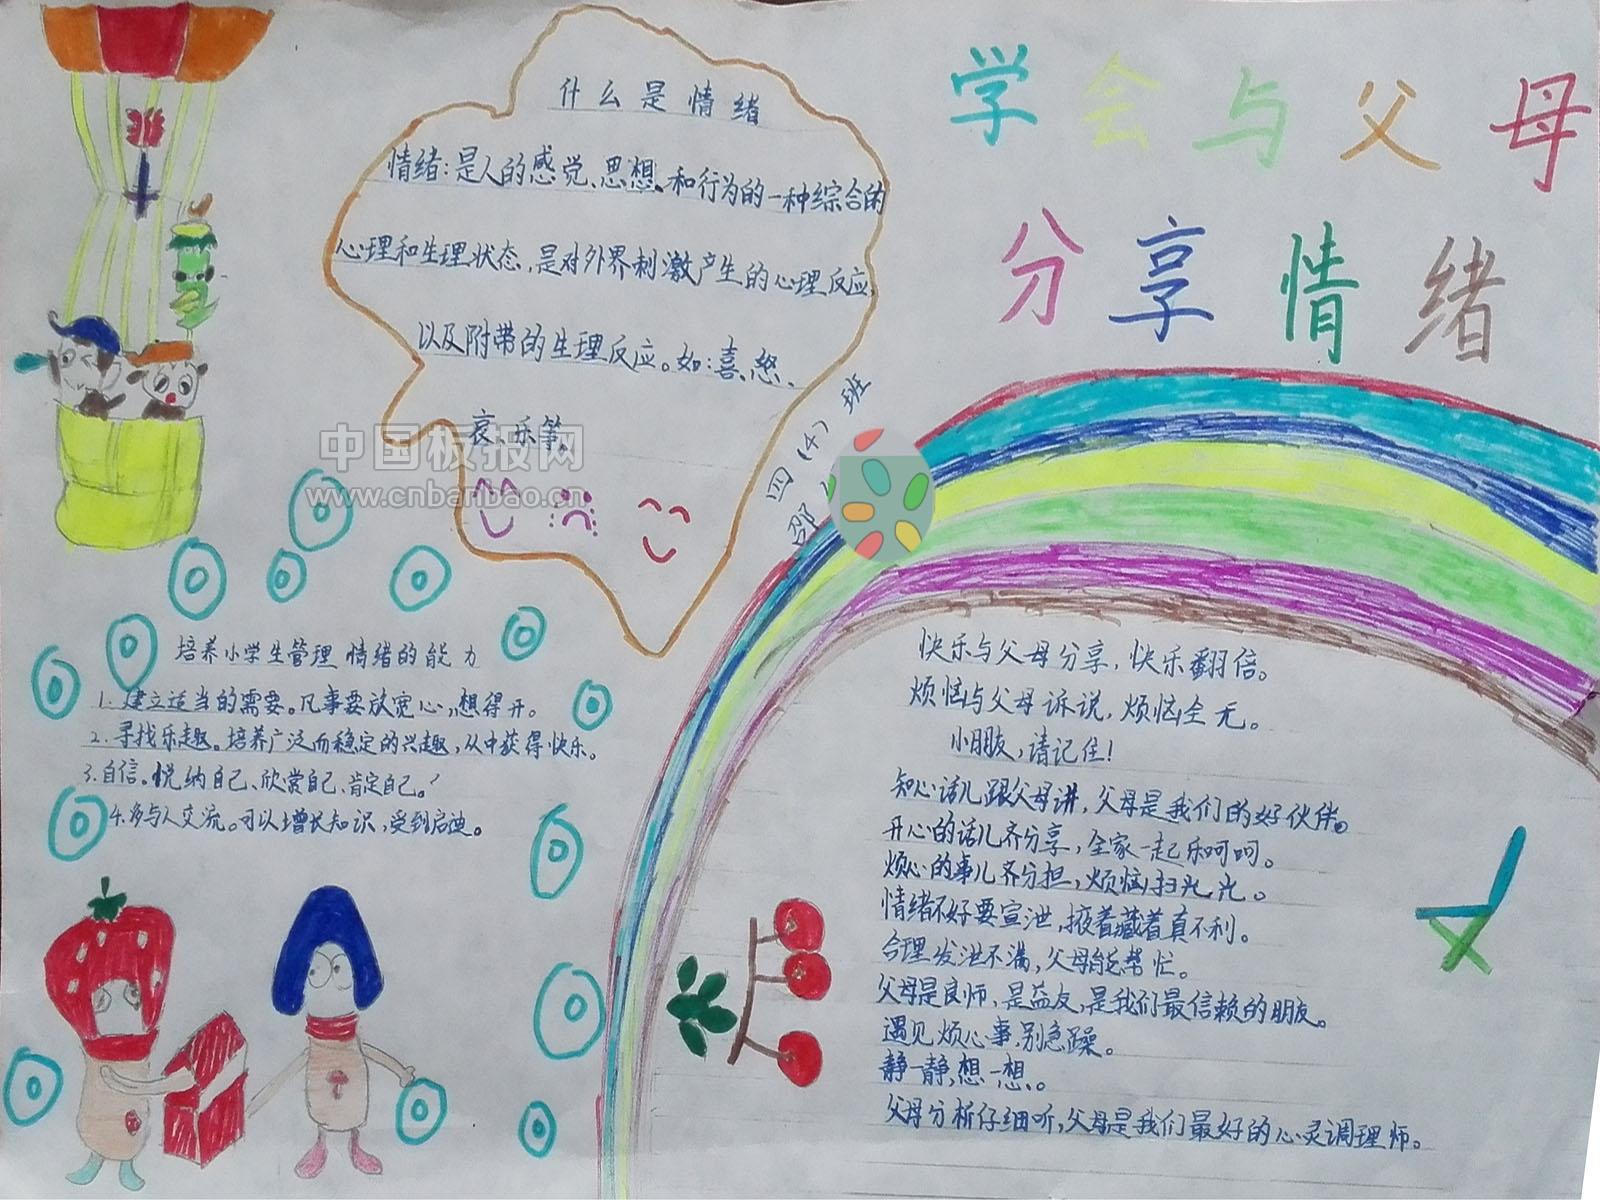 学会与父母
分享情绪
四(4)班
邵
什么是情绪
情绪:是人的感觉、思想、和行为的一种综合的
心理和生理状态,是对外界刺激产生的心理反应,
以及附带的生理反应。如:喜、怒、
哀、乐等。
中国板报网
www.cnbanbao.cn
培养小学生管理情绪的能力
1. 建立适当的需要。凡事要放宽心,想得开。
2. 寻找乐趣。培养广泛而稳定的兴趣,从中获得快乐。
3.自信。悦纳自己、欣赏自己、肯定自己。
4.多与人交流。可以增长知识,受到启迪。
快乐与父母分享,快乐翻倍。
烦恼与父母诉说,烦恼全无。
小朋友,请记住!
知心话儿跟父母讲,父母是我们的好伙伴。
开心的话儿齐分享,全家一起乐呵呵。
烦心的事儿齐分担,烦恼扫光光。
情绪不好要宣泄,掖着藏着真不利。
合理发泄不满,父母能帮忙。
父母是良师,是益友,是我们最信赖的朋友。
遇见烦心事,别急躁。
静一静,想一想。
父母分析仔细听,父母是我们最好的心灵调理师。